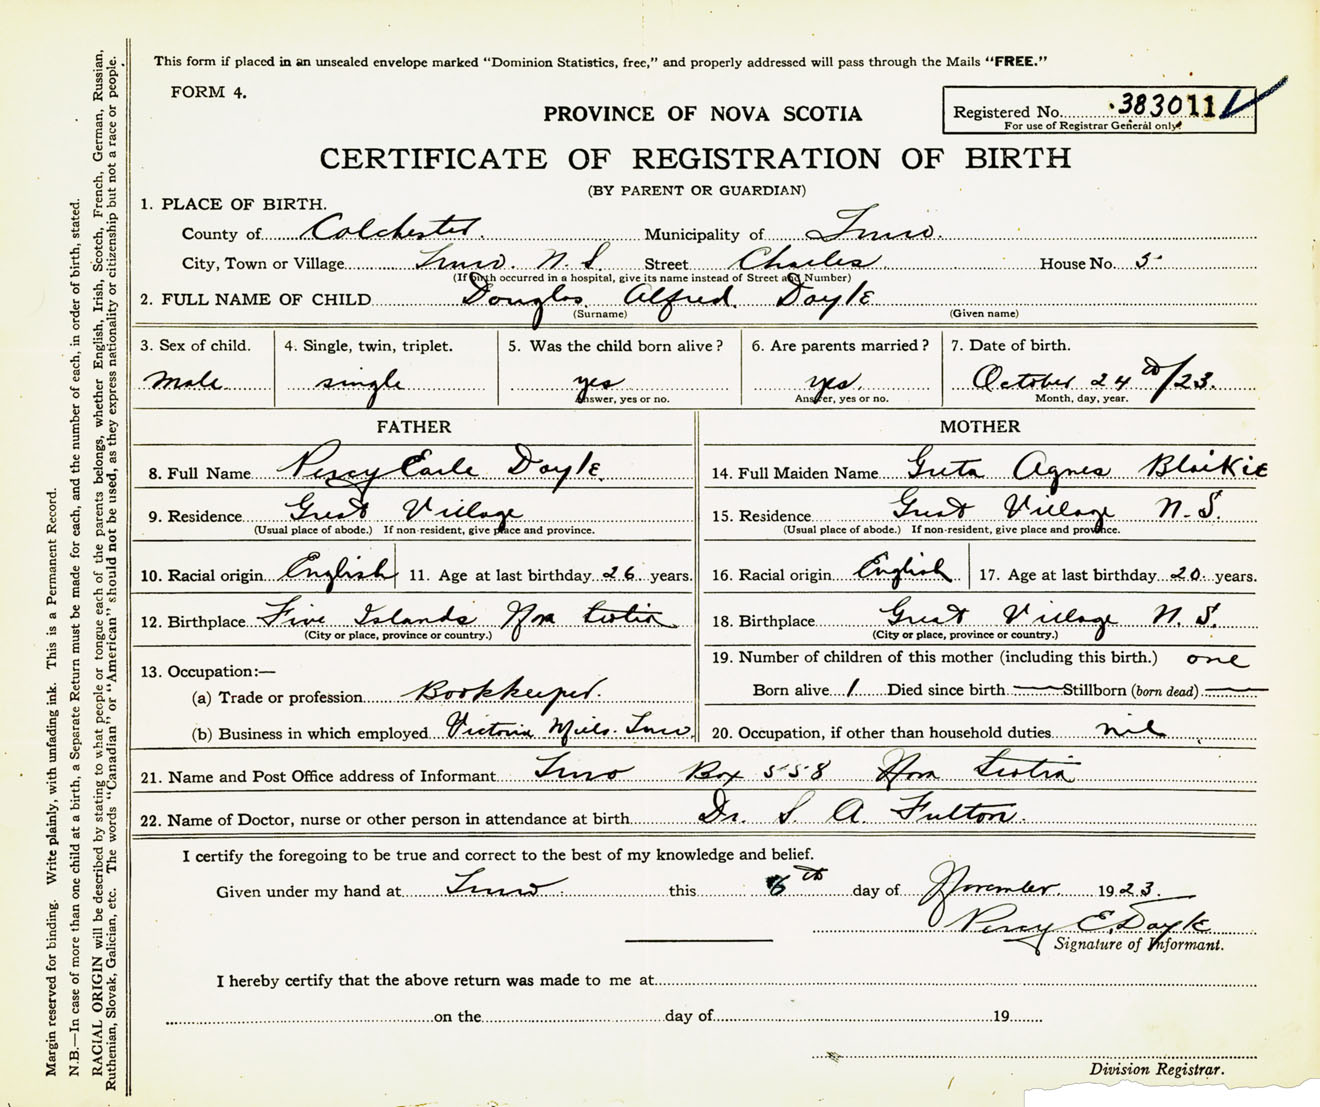 This form if placed in an unsealed envelope marked "Dominion Statistics, free," and properly addressed will pass through the Mails "FREE."
FORM 4.
PROVINCE OF NOVA SCOTIA
Registered No. 383011
For use of Registrar General only.
CERTIFICATE OF REGISTRATION OF BIRTH
(BY PARENT OR GUARDIAN)
1. PLACE OF BIRTH.
County of Colchester. Municipality of Truro.
City, Town or Village Truro. N. S. Street Charles House No. 5
(If birth occurred in a hospital, give its name instead of Street and Number)
2. FULL NAME OF CHILD Douglas Alfred Doyle
(Surname) (Given name)
3. Sex of child. 4. Single, twin, triplet. 5. Was the child born alive? 6. Are parents married? 7. Date of birth.
Male single yes yes. October 24th/23.
Answer, yes or no. Answer, yes or no. Month, day, year.
FATHER MOTHER
8. Full Name Percy Earle Doyle. 14. Full Maiden Name Greta Agnes Blaikie
9. Residence Great Village 15. Residence Great Village N. S.
(Usual place of abode.) If non-resident, give place and province. (Usual place of abode.) If non-resident, give place and province.
10. Racial origin English 11. Age at last birthday 26 years. 16. Racial origin English 17. Age at last birthday 20 years.
12. Birthplace Five Islands Nova Scotia 18. Birthplace Great Village N. S.
(City or place, province or country.) (City or place, province or country.)
13. Occupation:— 19. Number of children of this mother (including this birth.) one
(a) Trade or profession Bookkeeper. Born alive 1 Died since birth — Stillborn (born dead) —
(b) Business in which employed Victoria Mills. Truro. 20. Occupation, if other than household duties nil
21. Name and Post Office address of Informant Truro Box 558 Nova Scotia
22. Name of Doctor, nurse or other person in attendance at birth Dr. S. A. Fulton.
I certify the foregoing to be true and correct to the best of my knowledge and belief.
Given under my hand at Truro this 6th day of November 1923.
Percy E. Doyle
Signature of Informant.
I hereby certify that the above return was made to me at
on the day of 19
Division Registrar.
Margin reserved for binding. Write plainly, with unfading ink. This is a Permanent Record.
N.B.—In case of more than one child at a birth, a Separate Return must be made for each, and the number of each, in order of birth, stated.
RACIAL ORIGIN will be described by stating to what people or tongue each of the parents belongs, whether English, Irish, Scotch, French, German, Russian,
Ruthenian, Slovak, Galician, etc. The words "Canadian" or "American" should not be used, as they express nationality or citizenship but not a race or people.